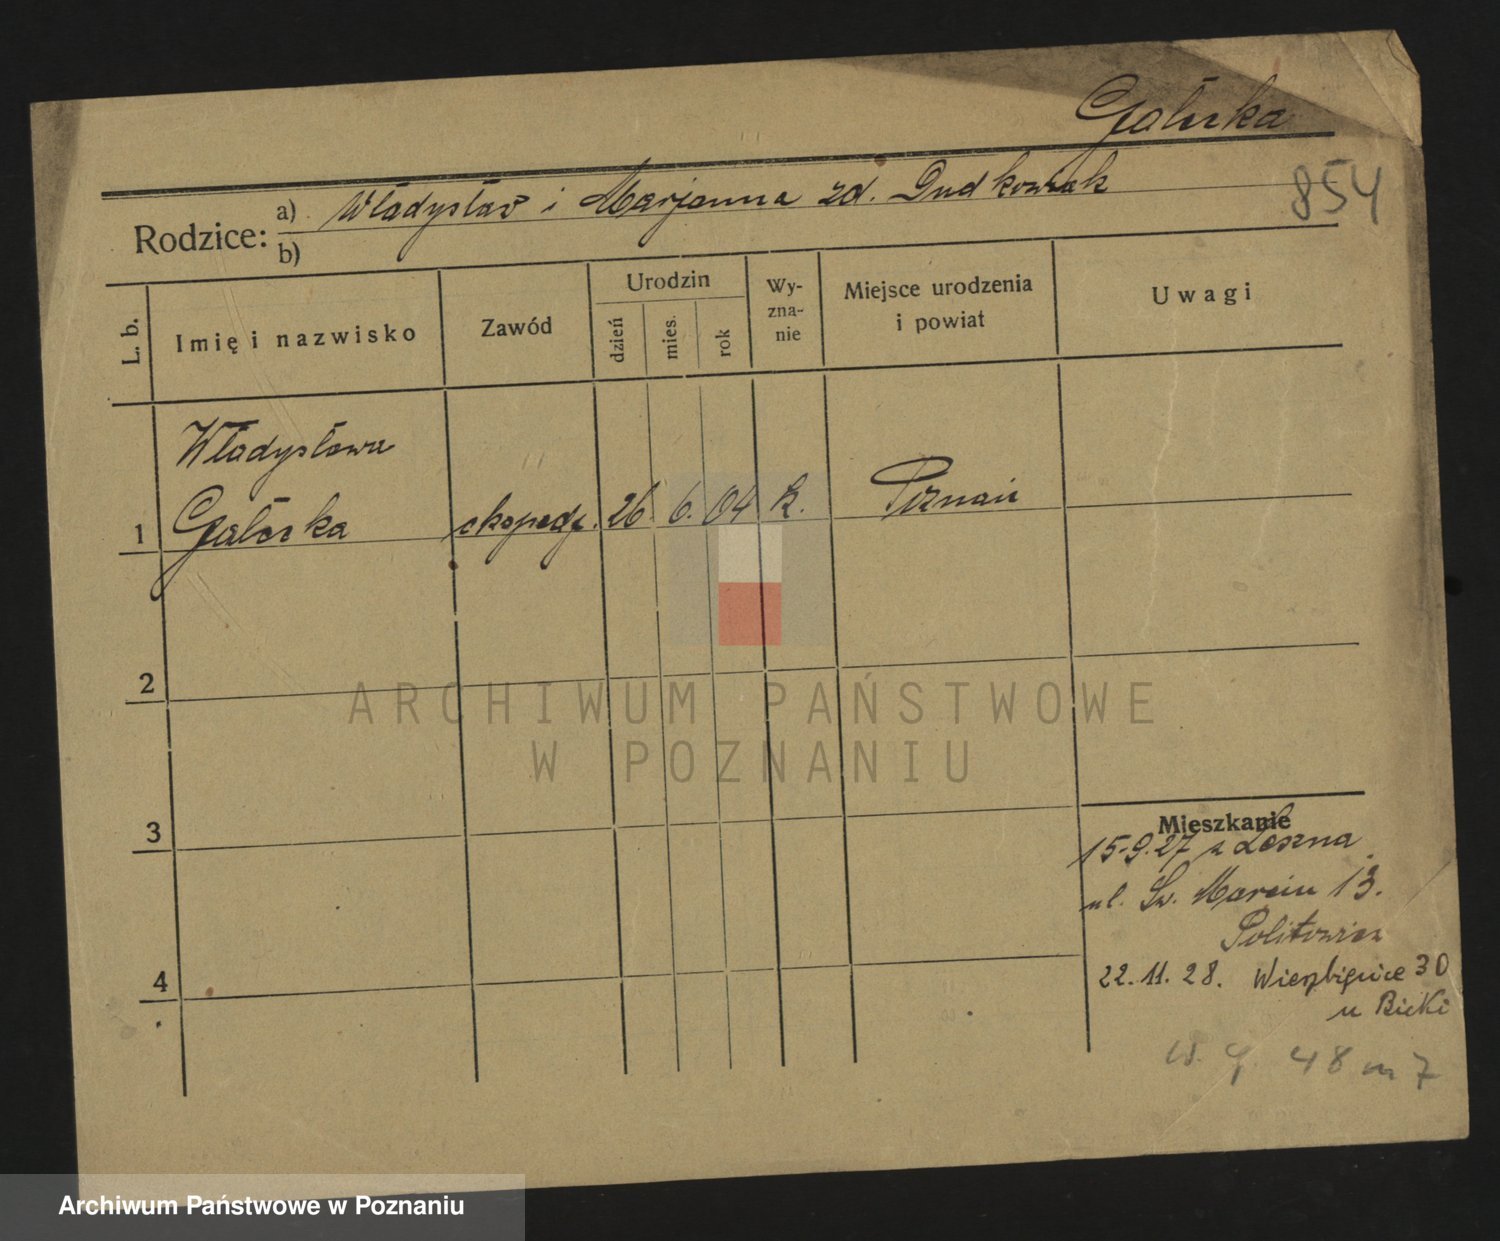 Gałuska
854
Rodzice:
a) Władysław i Marjanna zd. Dudkowiak
b)
L. b.
Imię i nazwisko
Zawód
Urodzin
dzień
mies.
rok
Wy-
zna-
nie
Miejsce urodzenia
i powiat
Uwagi
Władysława
1
ekspedj. 26. 6. 04 k. Poznań
2
ARCHIWUM PAŃSTWOWE
W POZNANIU
3
Mieszkanie
15.9.27 z Leszna
ul. Św. Marcin 13.
4
22.11.28. Wierzbięcice 30
48 m 7
Archiwum Państwowe w Poznaniu